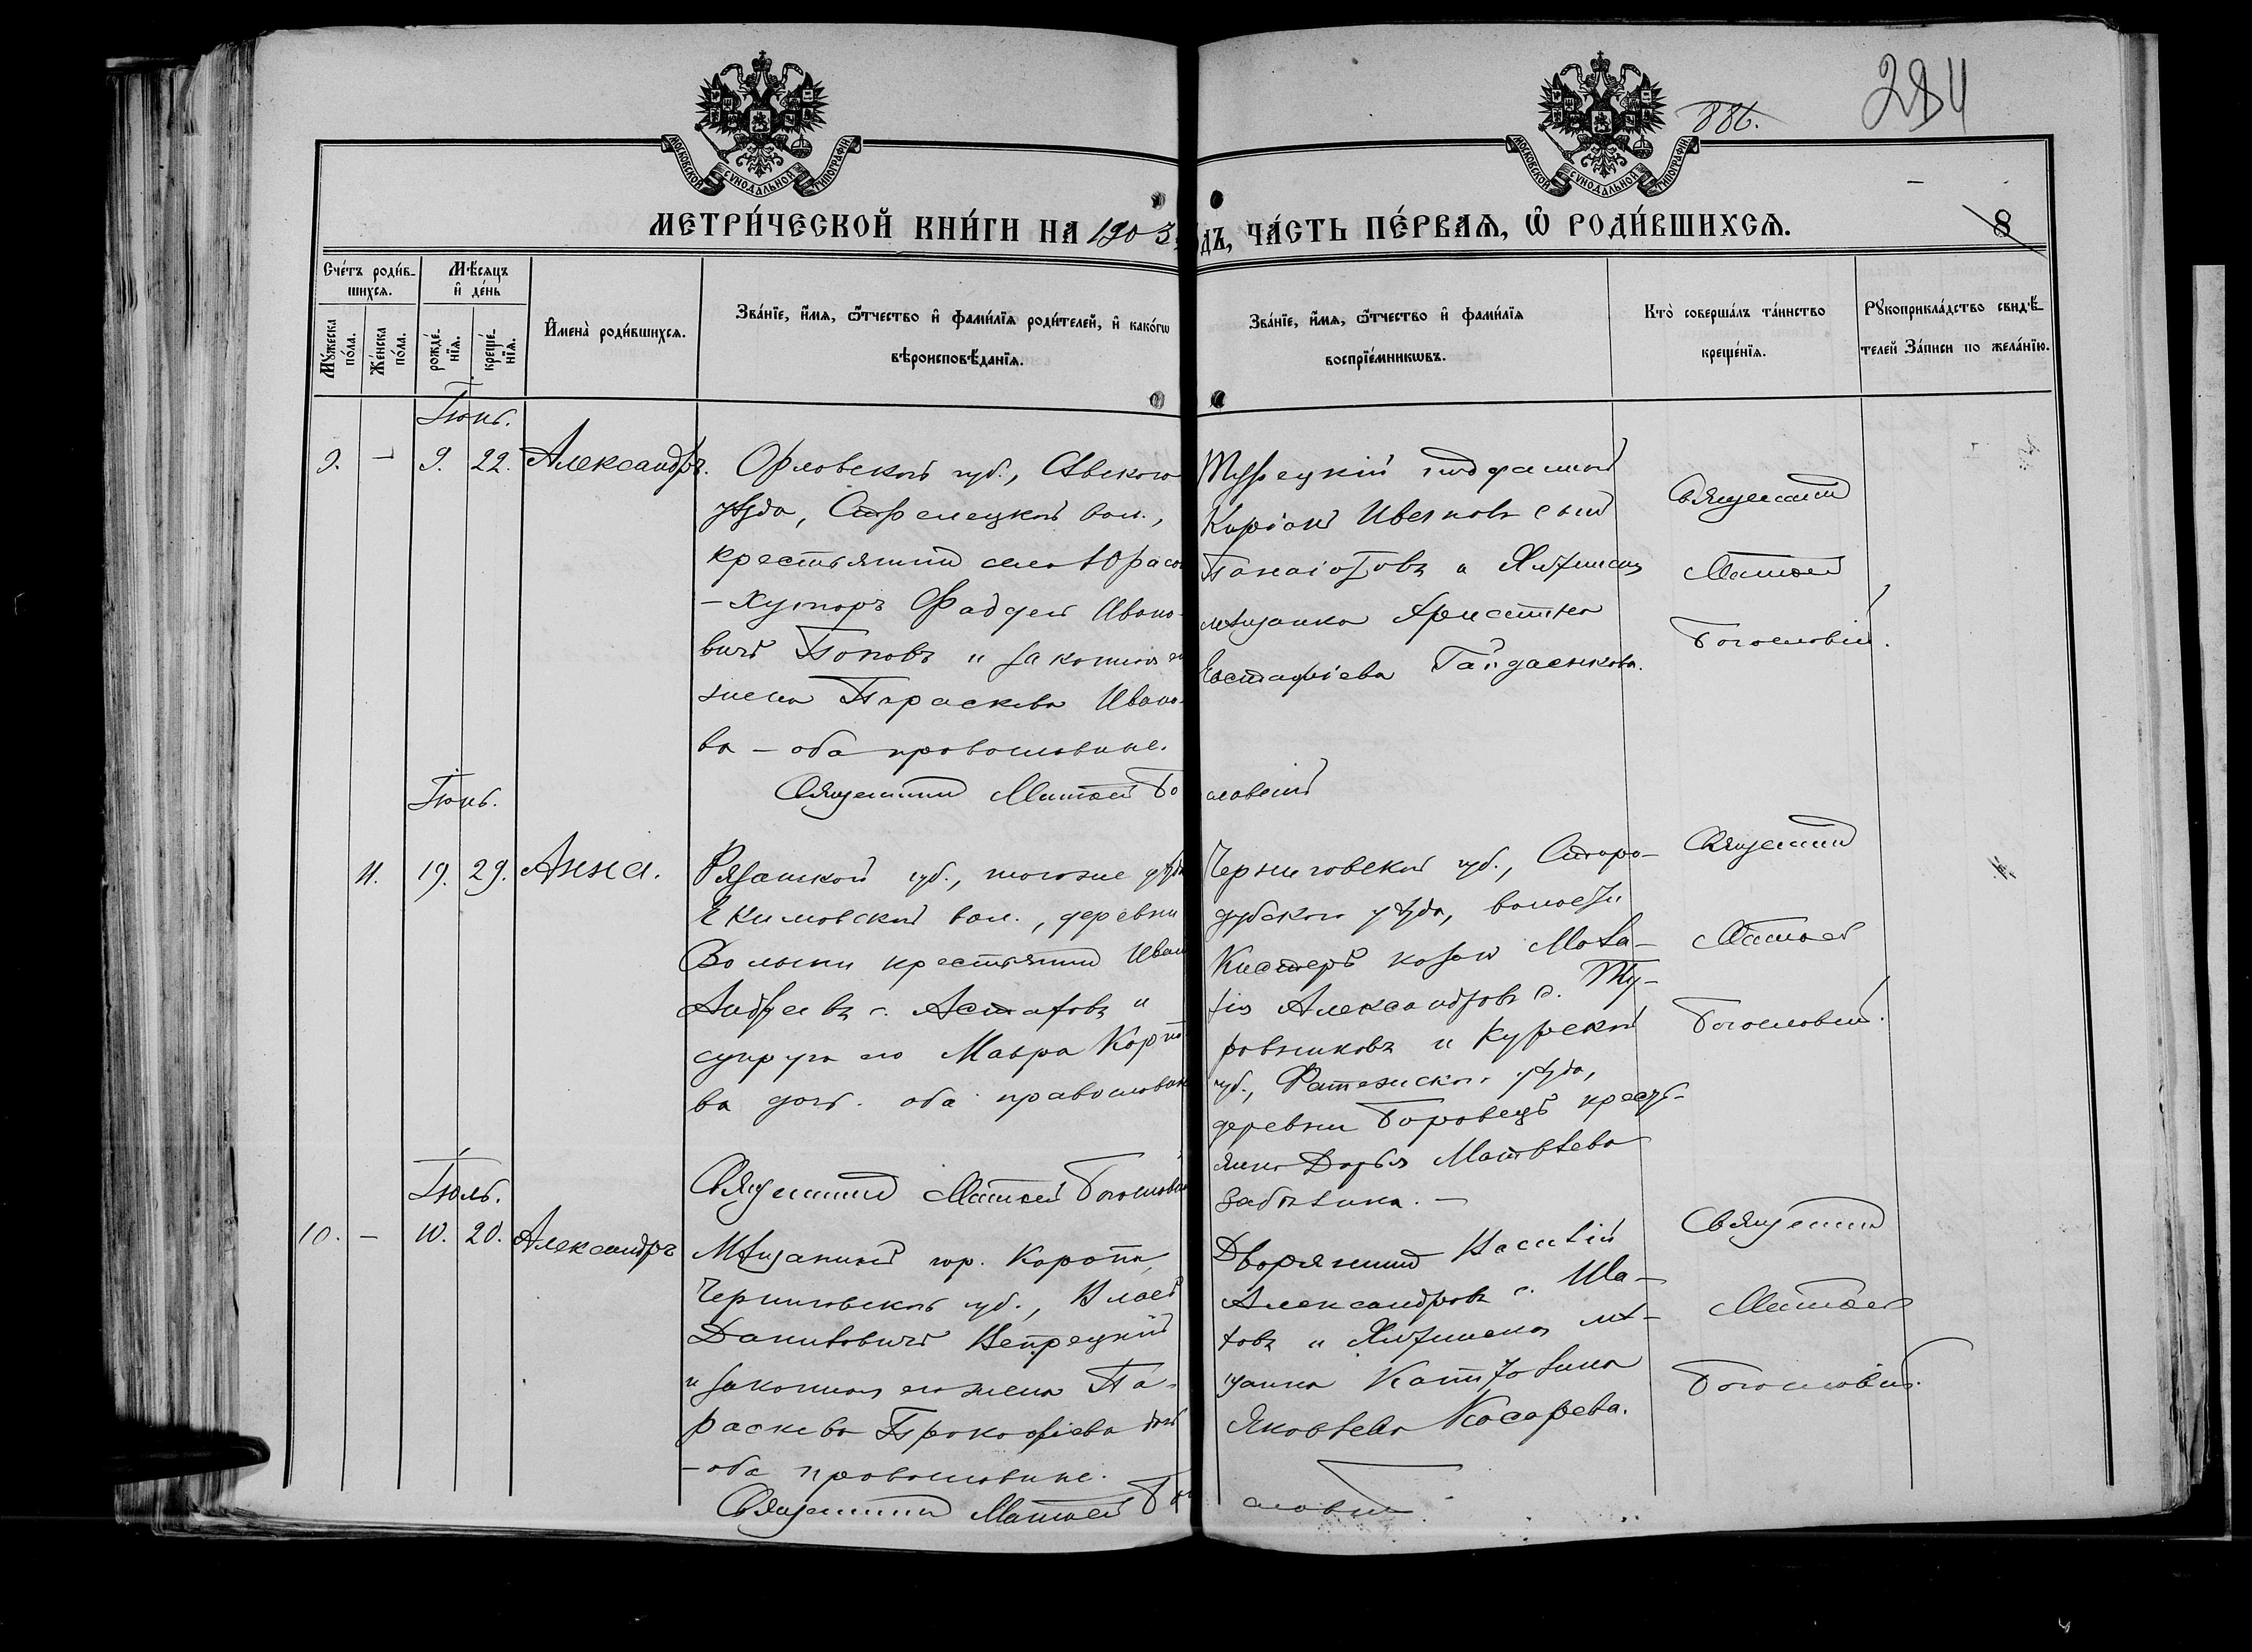 886.
284
МОСКОВСКОЙ СѴНОДАЛЬНОЙ ТИПОГРАФІИ
МОСКОВСКОЙ СѴНОДАЛЬНОЙ ТИПОГРАФІИ
МЕТРИ́ЧЕСКОЙ КНИ́ГИ НА 1903
ДЪ, ЧА́СТЬ ПЕ́РВАѦ, Ѿ РОДИ́ВШИХСѦ.
8
Сче́тъ роди́в-
шихсѧ.
Мꙋ́жеска по́ла.
Же́нска по́ла.
Мѣ́сѧцъ и҆ де́нь
рожде́нїѧ.
креще́нїѧ.
И҆мена̀ роди́вшихсѧ.
Зва́нїе, и҆́мѧ, ѻ҆́тчество и҆ фами́лїѧ роди́телей, и҆ како́гѡ
вѣроисповѣ́данїѧ.
Зва́нїе, и҆́мѧ, ѻ҆́тчество и҆ фами́лїѧ
воспрїе́мникѡвъ.
Кто̀ соверша́лъ та́инство
креще́нїѧ.
Рꙋкоприкла́дство свидѣ́-
телей за́писи по жела́нїю.
Іюнь.
9. — 9. 22. Александръ.
Орловской губ., Сѣвскаго
уѣзда, Стрелецкой вол.,
крестьянинъ села Юрасов
– Хуторъ Фаддей Ивано-
вичъ Поповъ и законная
жена Параскева Ивано-
ва – оба православные.
Священникъ Матѳей Бо
словский
Турецкій подданый
Иванов сынъ
Панаіотовъ и Ялтинская
мѣщанка Христина
Евстафіева Гайдаенкова.
Священникъ
Матѳей
Богословскій.
Іюнь.
11. 19. 29. Анна.
Рязанской губ., того же уѣзд
Екимовской вол., деревни
Волыни крестьянинъ Иван
Андреевъ с. Астафовъ и
супруга его Мавра Карпо
ва дочь. оба православн
Священникъ Матѳей Богослов
Черниговской губ., Старо-
дубскаго уѣзда, волости
Кистеръ козакъ
Александровъ с. Ту-
ровниковъ и Курской
губ., Фатежскаго уѣзда,
деревни Боровецъ кресть-
янка Дарья Матвѣева
Забѣлина. –
Священникъ
Матѳей
Богословскій.
Іюль.
10. – 10. 20. Александръ
Мѣщанинъ гор. Коропа,
Черниговской губ., Власъ
Даниловичъ Вепрецкій
и законная его жена Па-
раскева Прокофіева дочь
– оба православные.
Священникъ Матѳей Бо
словскій
Дворянинъ Василій
Александровъ с. Ша-
товъ и Ялтинская мѣ-
щанка
Яковлева Косарева.
Священникъ
Матѳей
Богословскій.